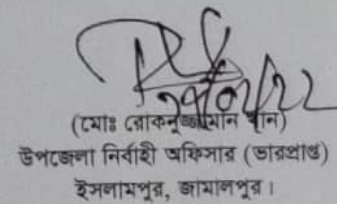 ২৭/০২/২২
(মোঃ রোকনুজ্জামান খান)
উপজেলা নির্বাহী অফিসার (ভারপ্রাপ্ত)
ইসলামপুর, জামালপুর।